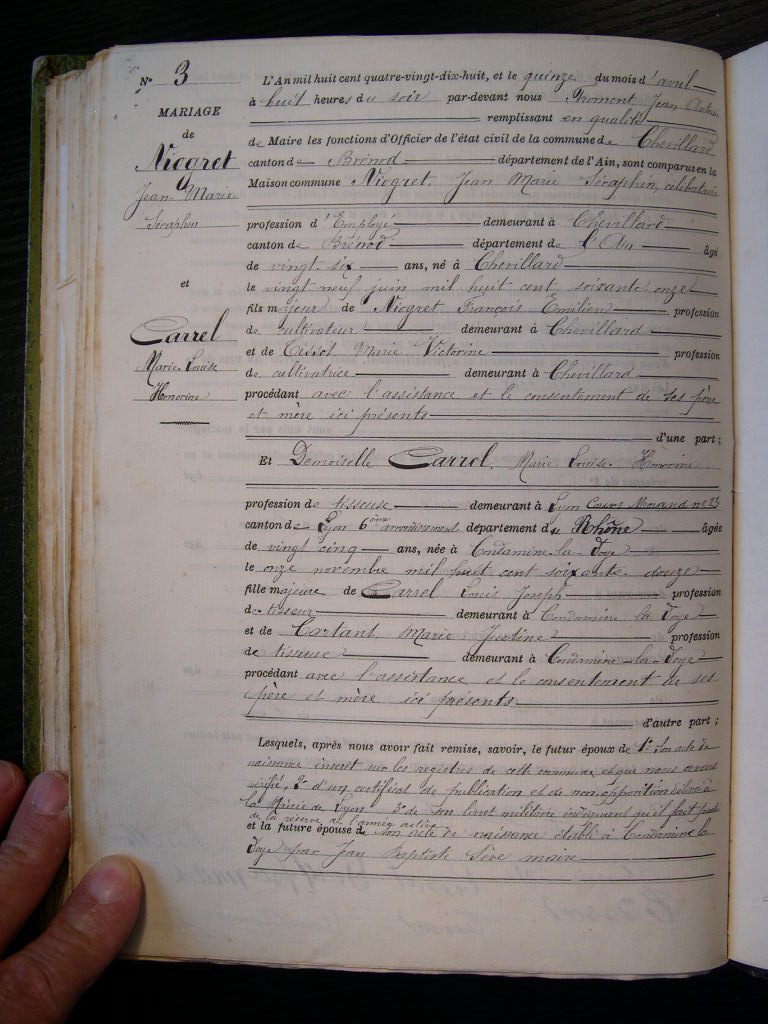 N° 3
MARIAGE
de
Niogret
Jean Marie
Séraphin
et
Carrel
Marie Louise
Honorine
L'An mil huit cent quatre-vingt-dix-huit, et le quinze du mois d'avril
à huit heures du soir par-devant nous Froment, Jean
remplissant en qualité
de Maire les fonctions d'Officier de l'état civil de la commune de Chevillard
canton de Brénod département de l'Ain, sont comparus en la
Maison commune Niogret, Jean Marie Séraphin, célibataire
profession d'Employé demeurant à Chevillard
canton de Brénod département de l'Ain âgé
de vingt six ans, né à Chevillard
le vingt neuf juin mil huit cent soixante onze
fils majeur de Niogret François Emilien profession
de cultivateur demeurant à Chevillard
et de Tissot, Marie Victorine profession
de cultivatrice demeurant à Chevillard
procédant avec l'assistance et le consentement de ses père
et mère ici présents
d'une part ;
Et Demoiselle Carrel, Marie Louise Honorine
profession de tisseuse demeurant à Lyon Cours Morand n° 23
canton de Lyon 6ème arrondissement département du Rhône âgée
de vingt cinq ans, née à Condamine-la-Doye
le onze novembre mil huit cent soixante douze
fille majeure de Carrel Louis Joseph profession
de tisseur demeurant à Condamine la Doye
et de Cartant Marie Justine profession
de tisseuse demeurant à Condamine-la-Doye
procédant avec l'assistance et le consentement de ses
père et mère ici présents
d'autre part ;
Lesquels, après nous avoir fait remise, savoir, le futur époux de 1° Son acte de
naissance inscrit sur les registres de cette commune et que nous avons
vérifié, 2° d'un certificat de publication et de non opposition délivré à
la Mairie de Lyon 3° de son livret militaire indiquant qu'il fait partie
de la réserve de l'armée active
et la future épouse de son acte de naissance établi à Condamine la
Doye par Jean Baptiste Sève maire